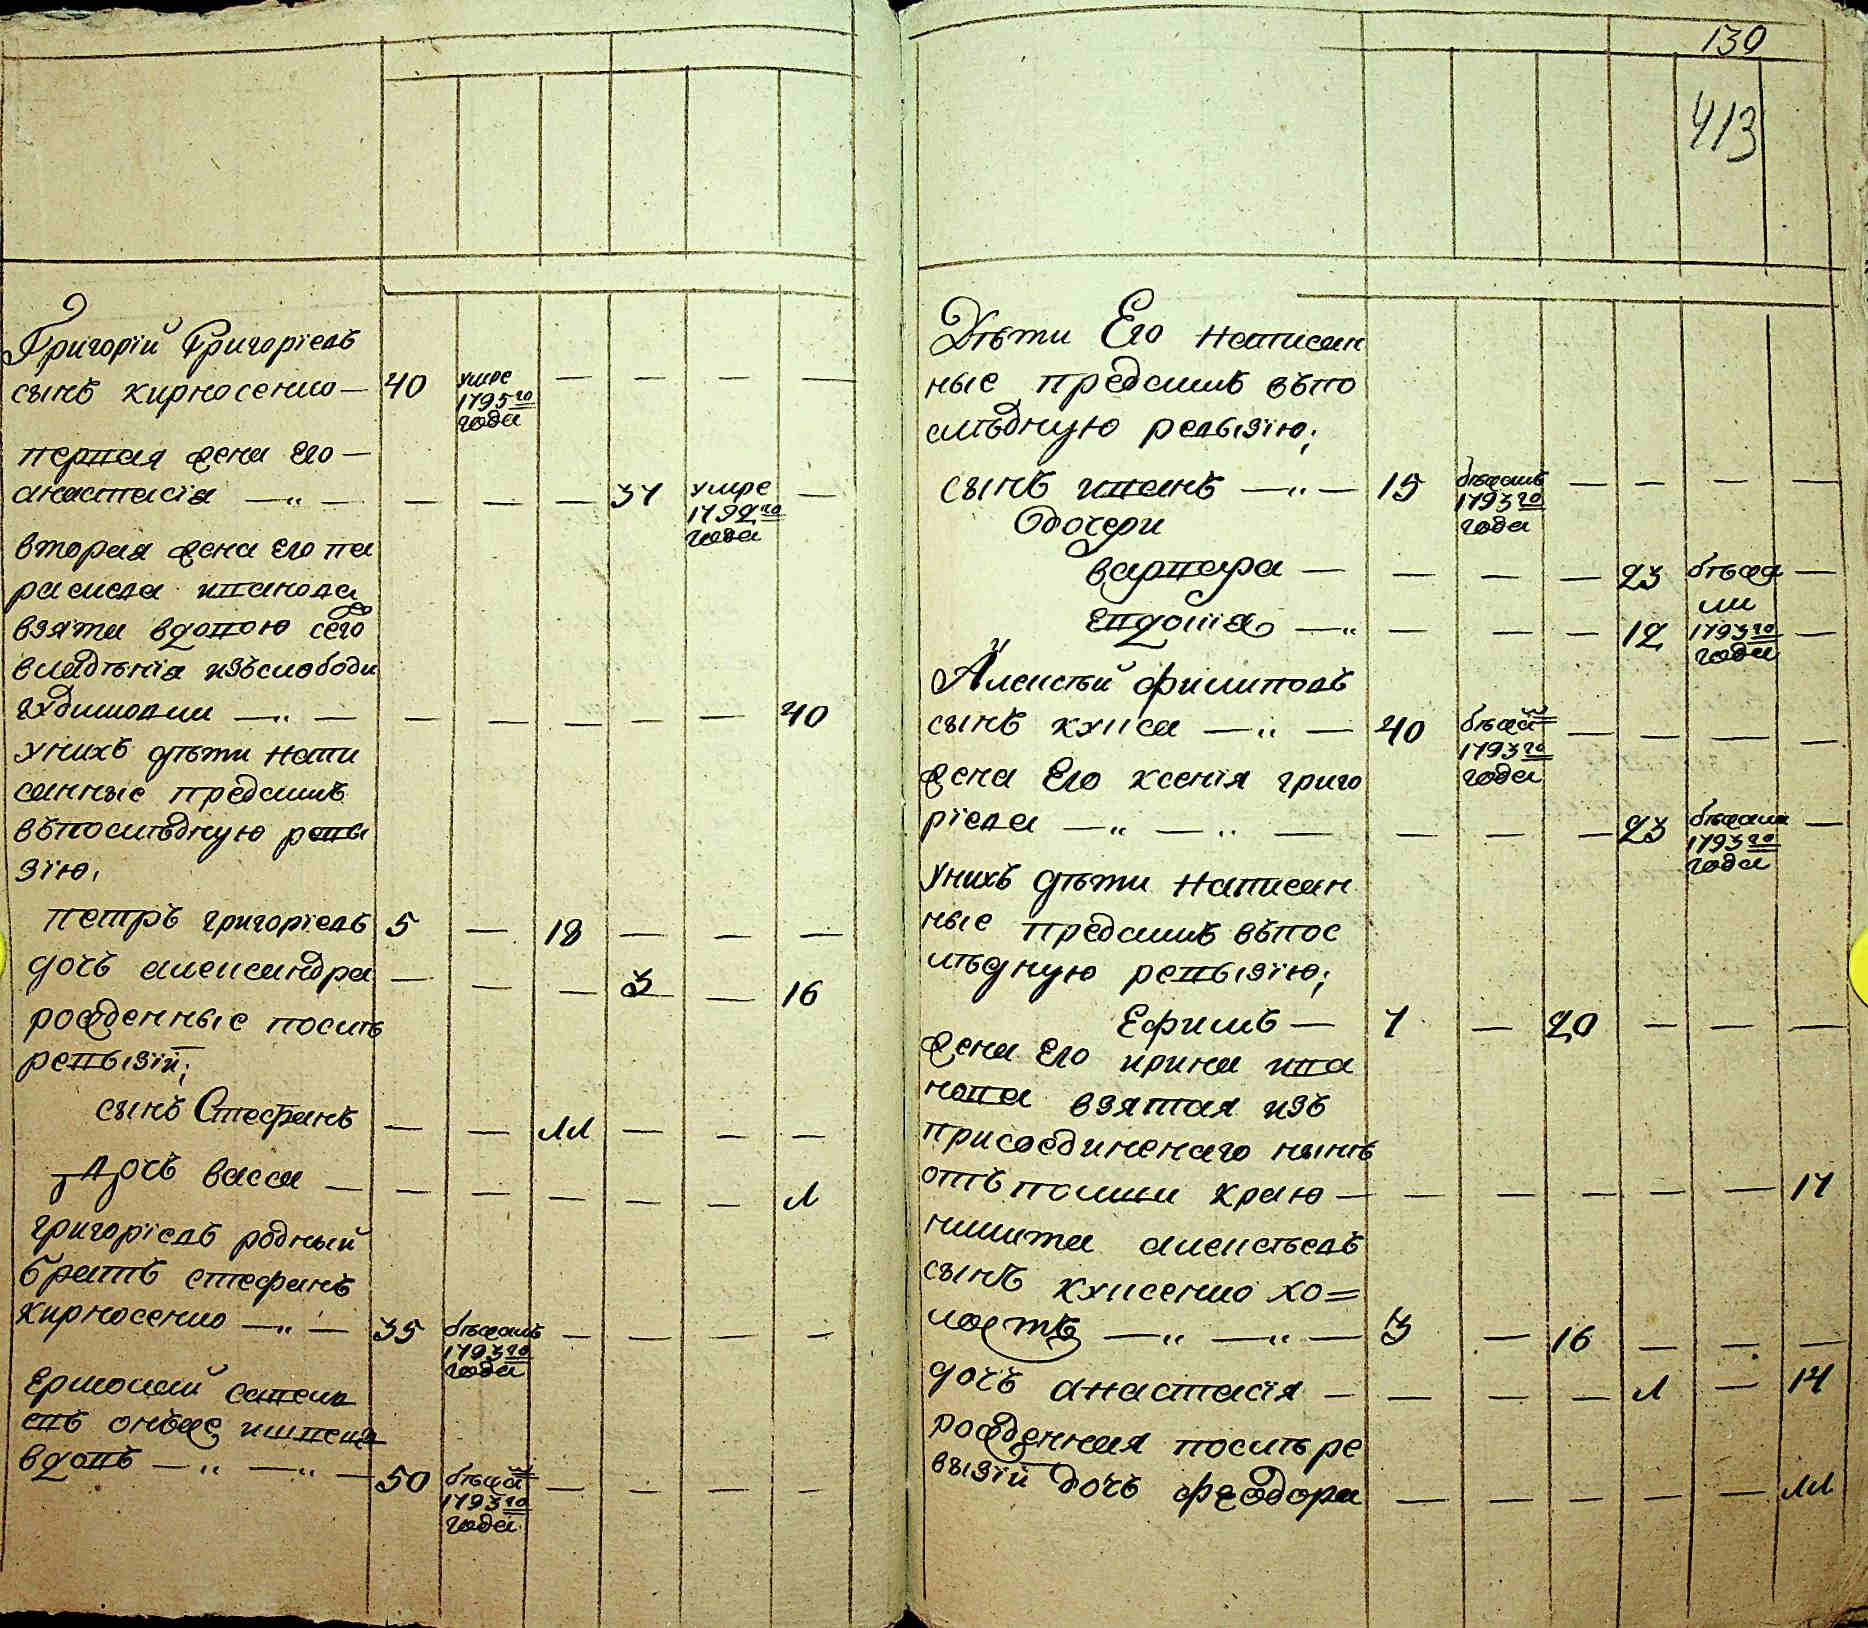 Григорій Григоріевъ
сынъ кирносенко — 40 умре 1795го года — — — —
первая жена Его —
анастасіа — „ — — — — 37 умре 1792го года —
вторая жена Его па
раскева иванова
взята вдовою сего
владѣніа изъ слободи
— „ — — — — — — 40
унихъ дѣти напи
санные предсимъ
въпослѣдную реви
зїю,
петръ григорїевъ 5 — 18 — — —
дочъ александра — — — 3 — 16
рожденные послѣ
ревызїи;
сынъ Стефанъ — — 11 — — —
дочъ васса — — — — — — 1
григорїевъ родный
братъ стефанъ
кирносенко — „ — 35 бѣжалъ 1793го года — — — —
Ермолай
вдовъ — „ — „ — 50 бѣжа 1793го года — — — —
130
413
Дѣти Его написан
ные предсимъ въпо
слѣдную ревызїю;
сынъ иванъ — „ — 15 бѣжалъ 1793го года — — — —
Дочери
варвара — — — — 23 бѣжа
ли —
евдокіа — „ — — — 12 1793го года —
Алексѣй филиповъ
сынъ куцса — „ — 40 бѣжа 1793го года — — — —
жена Его ксенїя григо
рїева — „ — „ — — — — 23 бѣжала 1793го года —
унихъ дѣти написан
ные предсимъ въпос
лѣдную ревызїю;
Ефимъ — 7 — 20 — — —
жена Его ирина ива
нова взятая изъ
присоединенаго нынѣ
отъ полши краю — — — — — — 17
никита алексѣевъ
сынъ куцсенко хо=
лостъ — „ — „ — 3 — 16 — — —
дочъ анастасїя — — — — 1 — 14
рожденная послѣ ре
вызїи дочъ феодора — — — — — 11